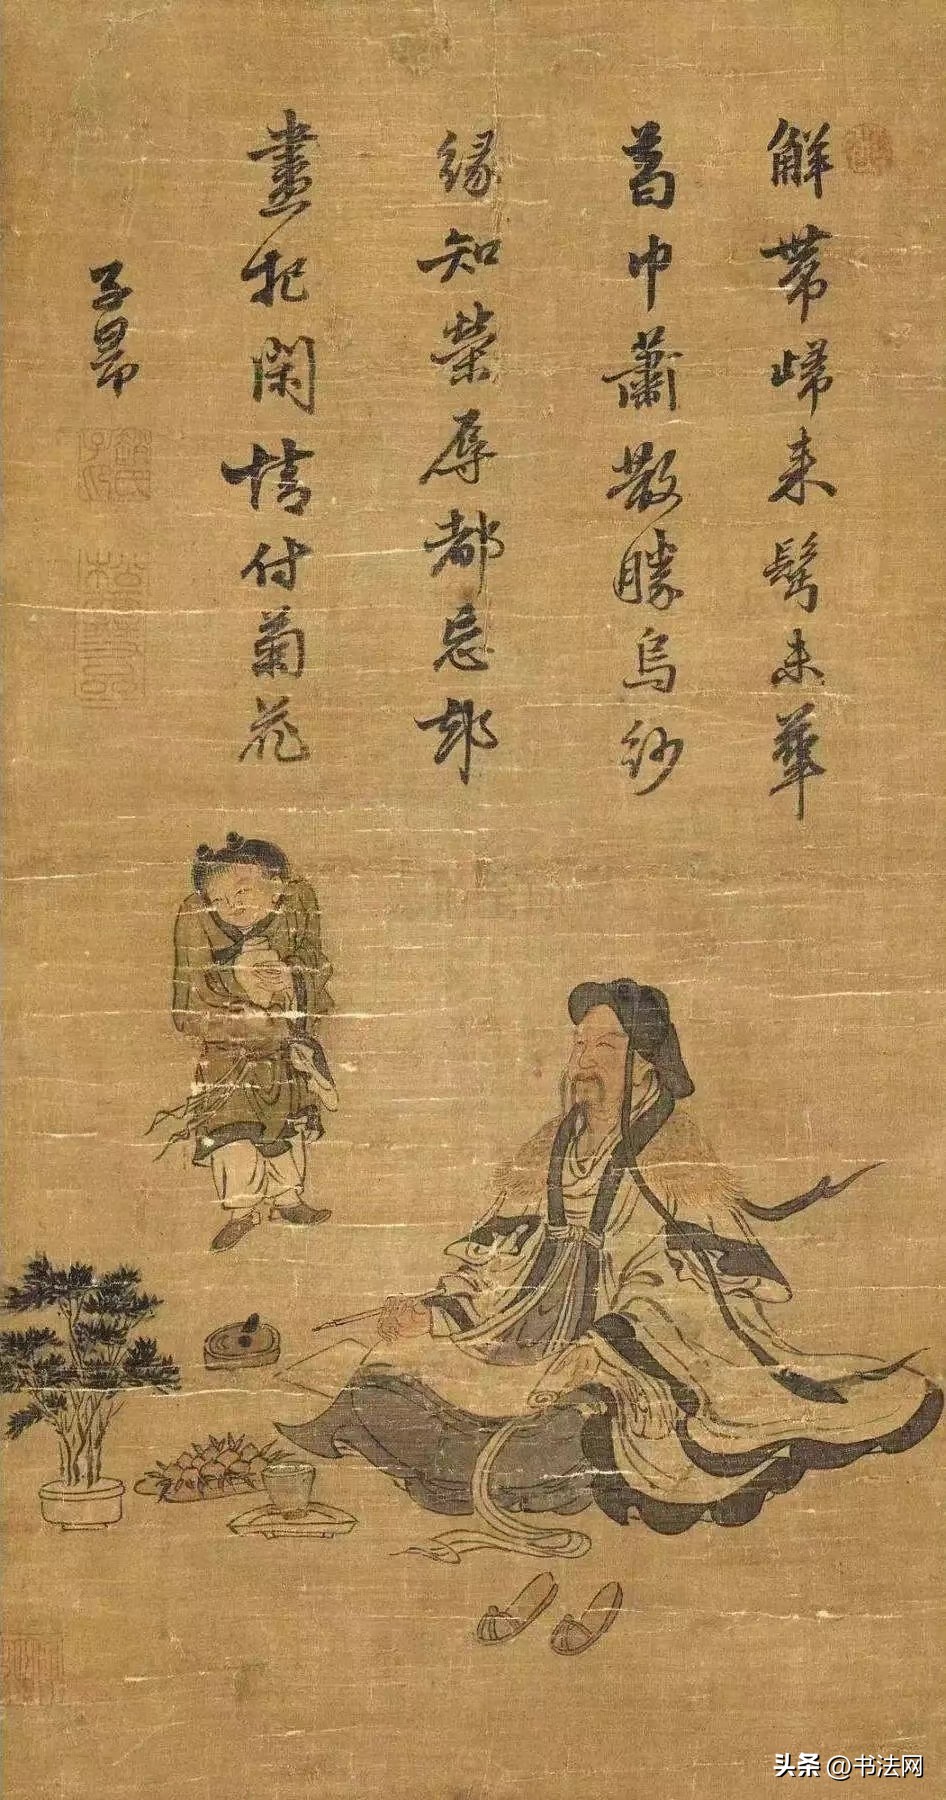 觧帶歸来髩未華
葛巾蕭散勝烏紗
緣知榮辱都忘却
盡把閑情付菊花
子昂
头条 @书法网